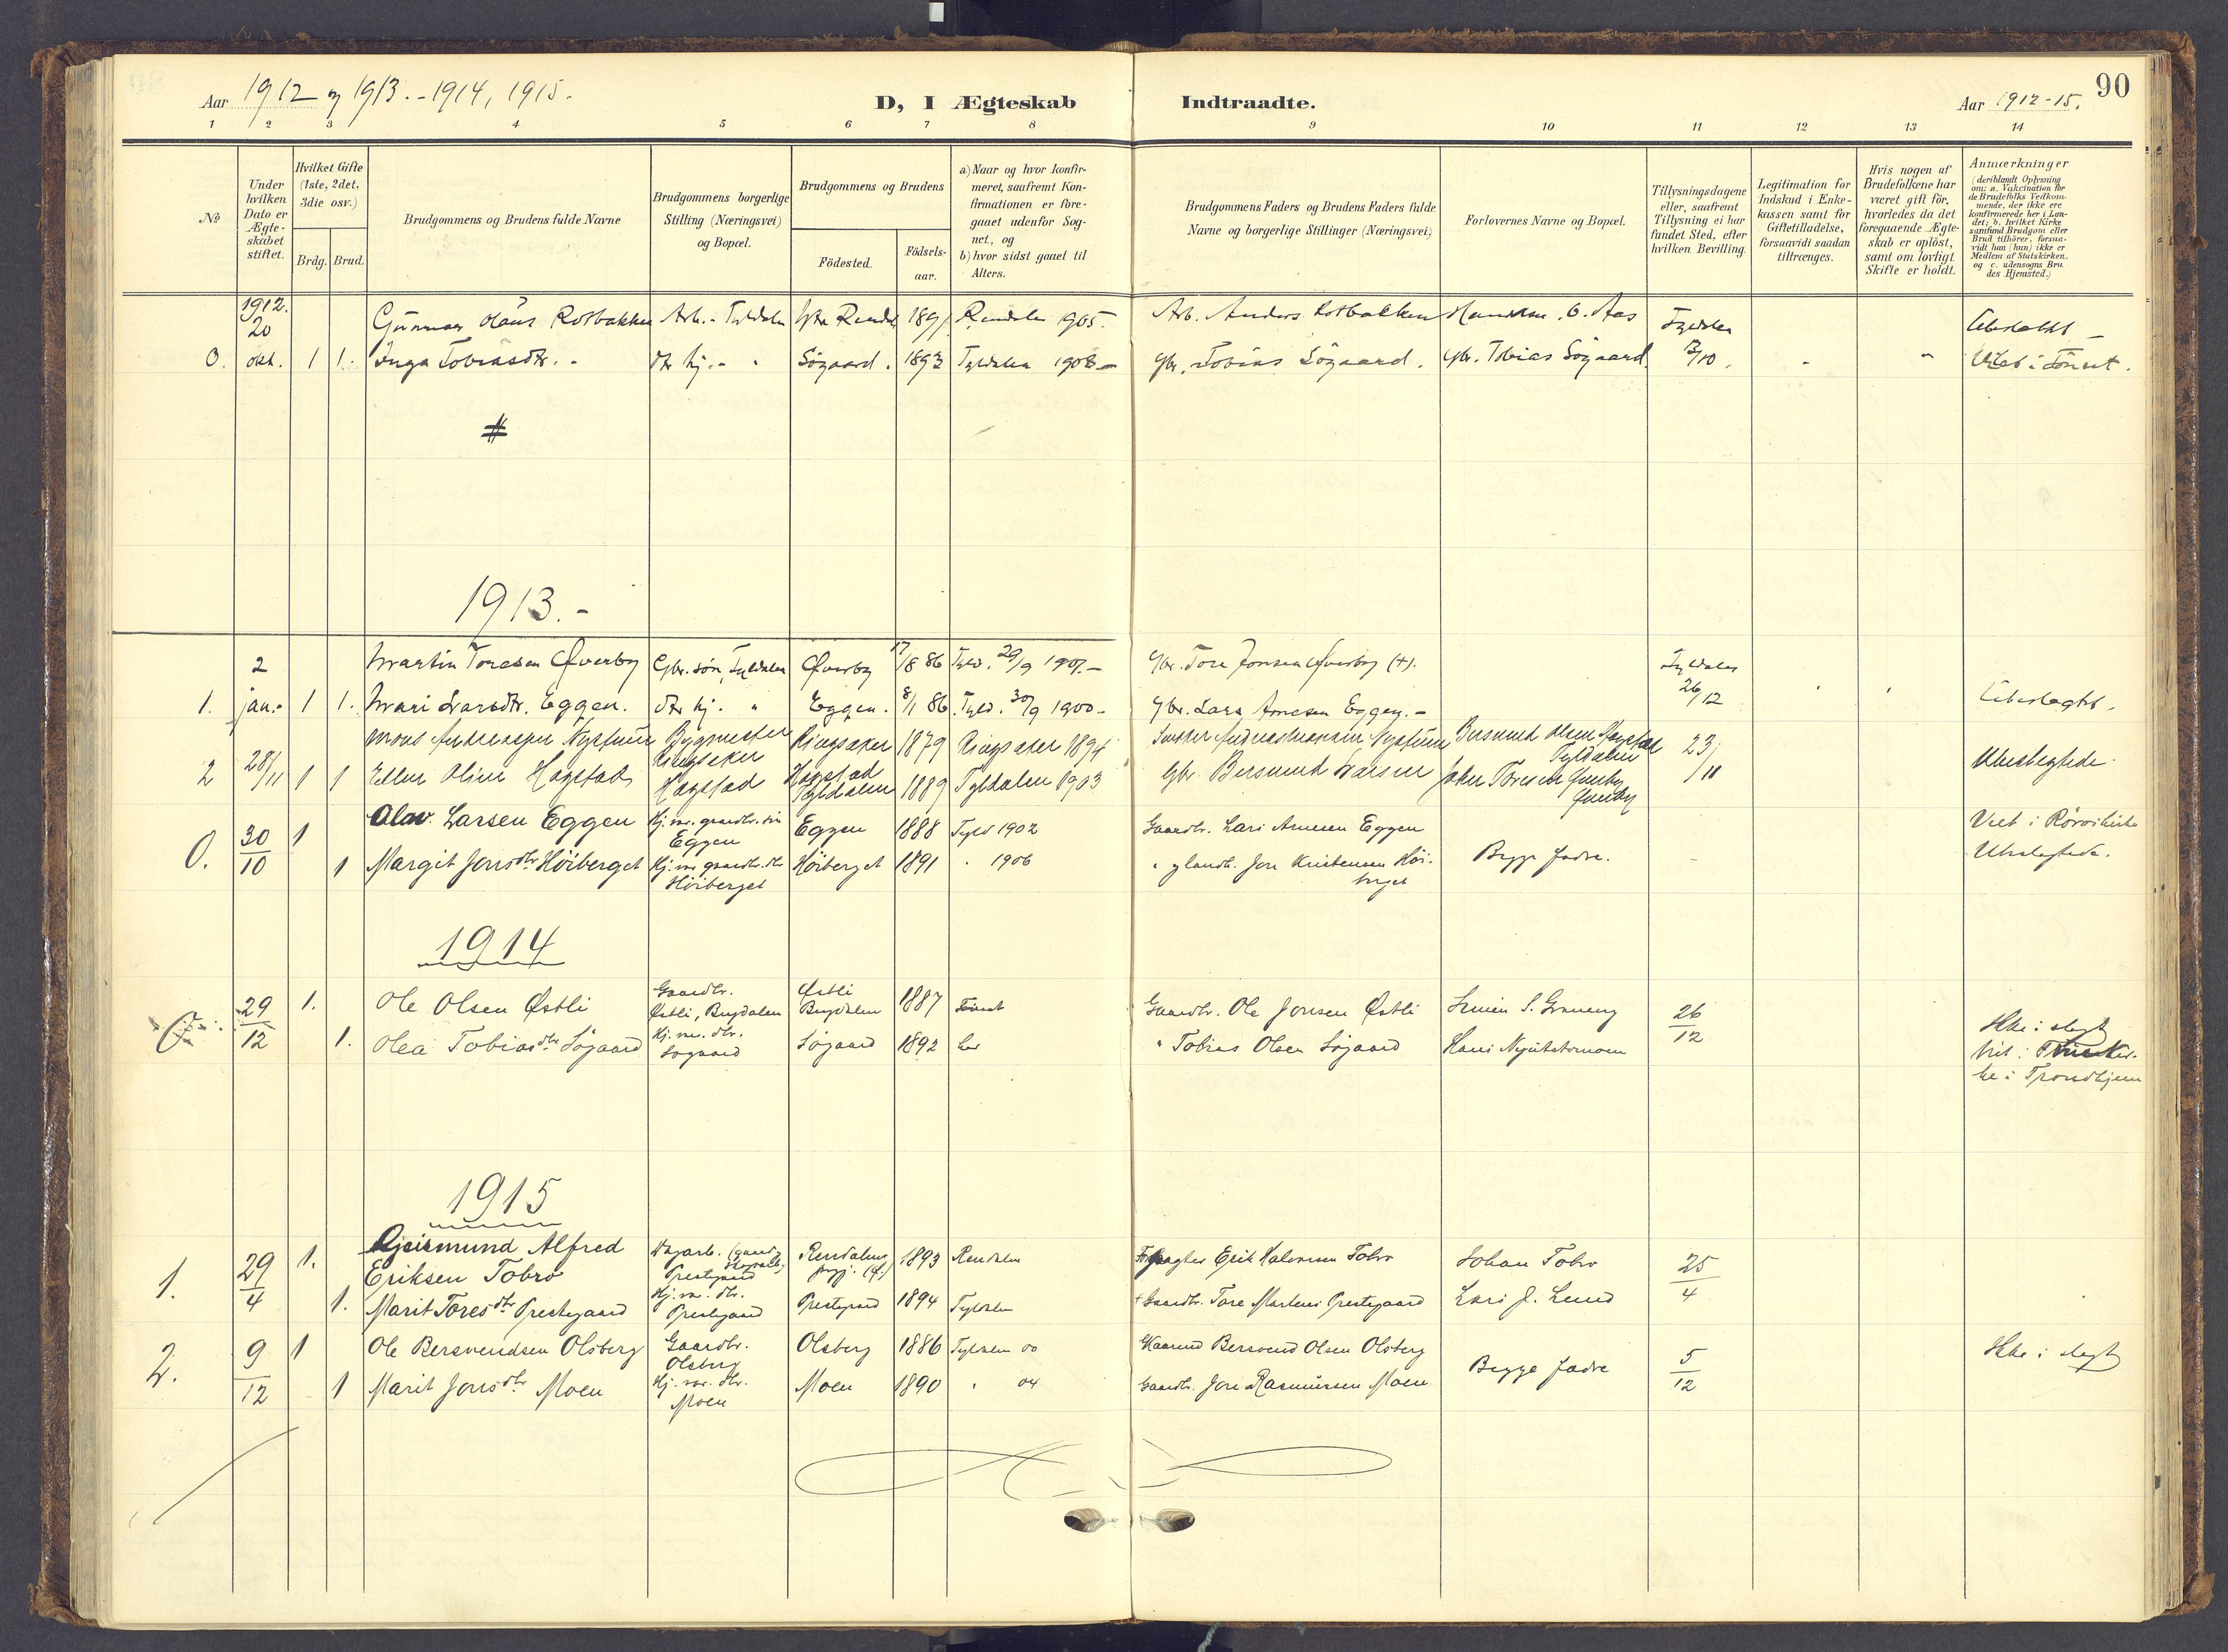 Aar 1912 og 1913. - 1914, 1915.
D, I Ægteskab Indtraadte.
Aar 1912-15.
90
1 2 3 4 5 6 7 8 9 10 11 12 13 14
No
Under hvilken Dato er Ægteskabet stiftet.
Hvilket Gifte (1ste, 2det, 3die osv.)
Brdg. Brud.
Brudgommens og Brudens fulde Navne
Brudgommens borgerlige Stilling (Næringsvei) og Bopæl.
Brudgommens og Brudens
Födested.
Födselsaar.
a) Naar og hvor konfirmeret, saafremt Konfirmationen er foregaaet udenfor Sognet, og
b) hvor sidst gaaet til Alters.
Brudgommens Faders og Brudens Faders fulde Navne og borgerlige Stillinger (Næringsvei)
Forlovernes Navne og Bopæl.
Tillysningsdagene eller, saafremt Tillysning ei har fundet Sted, efter hvilken Bevilling.
Legitimation for Indskud i Enkekassen samt for Giftetilladelse, forsaavidt saadan tiltrænges.
Hvis nogen af Brudefolkene har været gift för, hvorledes da det foregaaende Ægteskab er oplöst, samt om lovligt Skifte er holdt.
Anmærkninger
(deriblandt Oplysning om: a. Vakcination for de Brudefolks Vedkommende, der ikke ere konfirmerede her i Landet; b. hvilket Kirkesamfund Brudgom eller Brud tilhörer, forsaavidt han (hun) ikke er Medlem af Statskirken. og c. udensogns Brudes Hjemsted.)
1912.
20 Gunnar Olaus Rotbakken Arb. - Tyldalen Rendal 1891 Rendalen 1905. Arb. Anders Rotbakken O. Aas Tyldalen
0. okt. 1 1. Inga Tobiasdtr. Søgaard. 1893 Tyldalen 1908.- Gbr. Tobias Søgaard. Gbr. Tobias Søgaard. /10. Viet i Tönset.
1913.-
2 Martin Toresen Øverby Gbr. søn, Tyldalen Øverby 17/8 86 Tyld. 29/9 1901.- Gbr. Tore Jonsen Øverby (+). Tyldalen
1. jan.- 1 1. Mari Larsdtr. Eggen. dtr hj. " Eggen. 8/1 86. Tyld. 30/9 1900.- Gbr. Lars Arnesen Eggen.- 26/12 Ubeslegtet.
Andreassen Nystuen Bygmester Ringsaker Ringsaker 1879 Ringsaker 1894 Nystuen Bersvend Olsen Hagstad Tyldalen 23/11
2 28/11 1 1 Eline Oline Hagstad Hagstad Hagstad Tyldalen 1889 Tyldalen 1903 Gbr. Bersvend Larsen Toresen Øverby Øverby Ubeslegtede.
Olav Larsen Eggen Hj.v. gaardbr. søn Eggen Eggen 1888 Tyld 1902 Gaardbr. Lars Arnesen Eggen Viet i Røros kirke
0. 30/10 1 1 Margit Jonsdtr Höiberget Hj.v. gaardbr. dtr Höiberget Höiberget 1891 " 1906 " Jon Kristensen Höiberget Begge fædre. - Ubeslegtede.
1914
29/12 1. Ole Olsen Østli Gaardbr. Østli, Brydalen Østli Brydalen 1887 Tönset Gaardbr. Ole Jonsen Østli 26/12 Ikke i slegt
1. Olea Tobiasdtr Søgaard Hj. v. dtr. Søgaard Søgaard 1892 her " Tobias Olsen Søgaard Hans Viet i Kirke i Trondhjem
1915
1. 29/4 1. Alfred Eriksen Tobro Prestegaard Rendalens 1893 Rendalen Forpagter Erik Halvorsen Tobro Johan Tobro 25/4
1. Marit Toresdtr Prestegaard Hj. v. dtr. Prestegaard Prestegaard 1894 Tyldalen + Gaardbr. Tore Prestegaard Lars J. Lund
2. 9/12 1 Ole Bersvendsen Olsberg Gaardbr. Olsberg Olsberg 1886 Tyldalen 00 Kaarmd Bersvend Olsen Olsberg Begge fædre 5/12 Ikke i slegt
1 Marit Jonsdtr Moen Hj. v. dtr. Moen Moen 1890 " 04 Gaardbr. Jon Rasmussen Moen